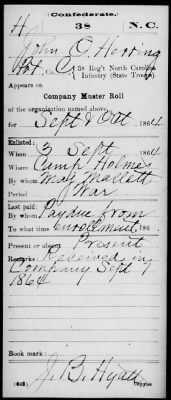 Confederate.
H 38 N.C.
John O. Herring
Pvt, Co. 38 Reg't North Carolina
Infantry (State Troops).
Appears on
Company Muster Roll
of the organization named above,
for Sept & Oct, 1864
Enlisted:
When 3 Sept, 1864
Where Camp Holmes
By whom Maj. Mallett
Period War
Last paid:
By whom Paydue from
To what time enrollment, 186
Present or absent Present
Remarks: Received in
Company Sept 7
1864
Book mark:
J. B. Hyatt
(642) Copyist.